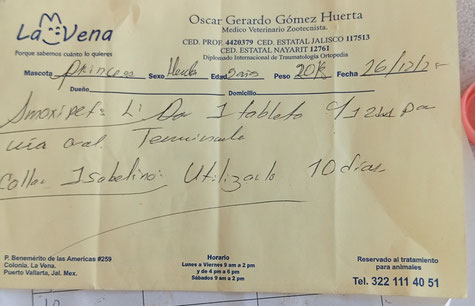 La Vena
Porque sabemos cuánto lo quieres
Oscar Gerardo Gómez Huerta
Medico Veterinario Zootecnista.
CED. PROF. 4420379 CED. ESTATAL JALISCO 117513
CED. ESTATAL NAYARIT 12761
Diplomado Internacional de Traumatología Ortopedia
Mascota Princesa Sexo Hembra Edad 2 años Peso 20k Fecha 26/12/25
Dueño Domicilio
Amoxipet: L: Dar 1 tableta c/12 hrs por
via oral. Terminarla
Collar Isabelino: Utilizarlo 10 días
P. Benémerito de las Americas #259
Colonia. La Vena.
Puerto Vallarta, Jal. Mex.
Horario
Lunes a Viernes 9 am a 2 pm
y de 4 pm a 6 pm
Sábados 9 am a 2 pm
Reservado al tratamiento
para animales
Tel. 322 111 40 51